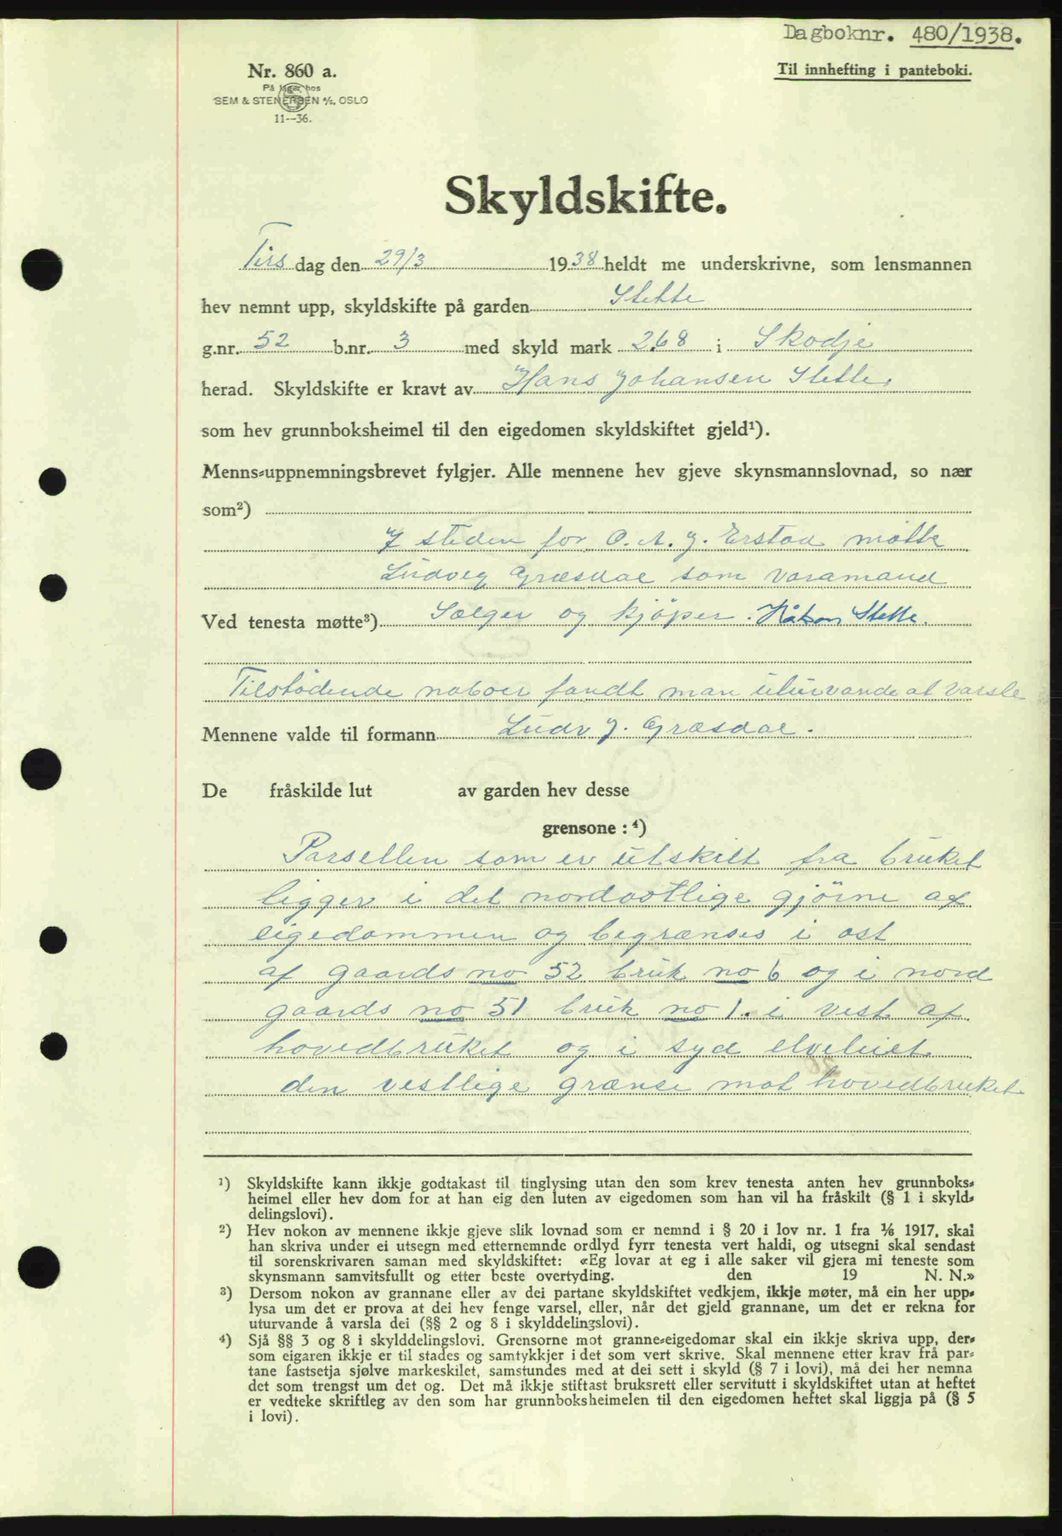 Dagboknr. 480/1938.
Nr. 860 a.
Til innhefting i panteboki.
På lager hos
SEM & STENERSEN A/S, OSLO
11--36.
Skyldskifte.
Tirsdag den 29/3 1938 heldt me underskrivne, som lensmannen
hev nemnt upp, skyldskifte på garden Stette
g.nr. 52 b.nr. 3 med skyld mark 2.68 i Skodje
herad. Skyldskifte er kravt av Hans Johansen Stette.
som hev grunnboksheimel til den eigedomen skyldskiftet gjeld¹).
Menns-uppnemningsbrevet fylgjer. Alle mennene hev gjeve skynsmannslovnad, so nær
som²)
I steden for O. A. J. Erstad møtte
Ludvig Græsdal som varamand
Ved tenesta møtte³) Sælger og kjöper. Håkon Stette.
Tilstødende naboer fandt man uturvande at varsle
Mennene valde til formann Ludv J. Græsdal.
De fråskilde lut av garden hev desse
grensone : ⁴)
Parsellen som er utskilt fra bruket
ligger i det nordostlige gjörne af
eigedommen og begrænses i ost
af gaards no 52 bruk no 6 og i nord
gaards no 51 bruk no 1. i vest af
hovedbruket og i syd elveleiet
den vestlige grænse mot hovedbruket
¹) Skyldskifte kann ikkje godtakast til tinglysing utan den som krev tenesta anten hev grunnboks-
heimel eller hev dom for at han eig den luten av eigedomen som han vil ha fråskilt (§ 1 i skyld-
delingslovi).
²) Hev nokon av mennene ikkje gjeve slik lovnad som er nemnd i § 20 i lov nr. 1 fra 1/6 1917, skal
han skriva under ei utsegn med etternemnde ordlyd fyrr tenesta vert haldi, og utsegni skal sendast
til sorenskrivaren saman med skyldskiftet: «Eg lovar at eg i alle saker vil gjera mi teneste som
skynsmann samvitsfullt og etter beste overtyding. den 19 N. N.»
³) Dersom nokon av grannane eller av dei partane skyldskiftet vedkjem, ikkje møter, må ein her upp-
lysa um det er prova at dei hev fenge varsel, eller, når det gjeld grannane, um det er rekna for
uturvande å varsla dei (§§ 2 og 8 i skylddelingslovi).
⁴) Sjå §§ 3 og 8 i skylddelingslovi. Grensorne mot granne-eigedomar skal ein ikkje skriva upp, der-
som eigaren ikkje er til stades og samtykkjer i det som vert skrive. Skal mennene etter krav frå par-
tane fastsetja sjølve markeskilet, samstundes med at dei sett i skyld (§ 7 i lovi), må dei her nemna
det som trengst um det og. Det må ikkje stiftast bruksrett eller servitutt i skyldskiftet utan at heftet
er vedteke skriftleg av den som har grunnboksheimelen til den eigedomen heftet skal liggja på (§ 5
i lovi).